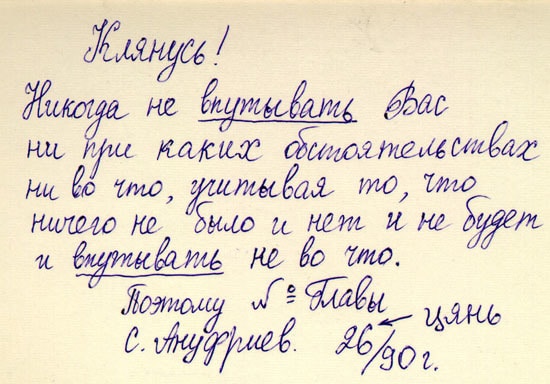 Клянусь!
Никогда не впутывать Вас
ни при каких обстоятельствах
ни во что, учитывая то, что
ничего не было и нет и не будет
и впутывать не во что.
Поэтому № Главы
← цянь
С. Ануфриев. 26/90г.